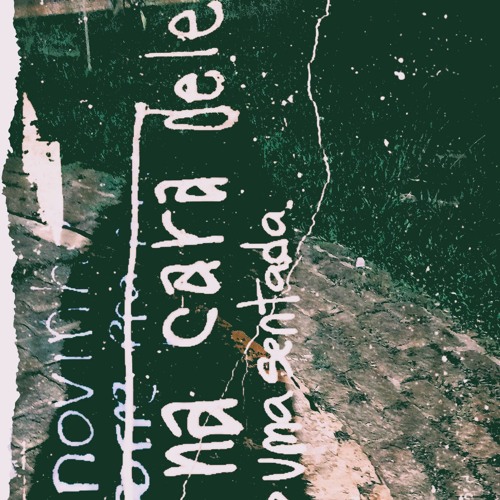 novinh
na cara dele
uma sentada.